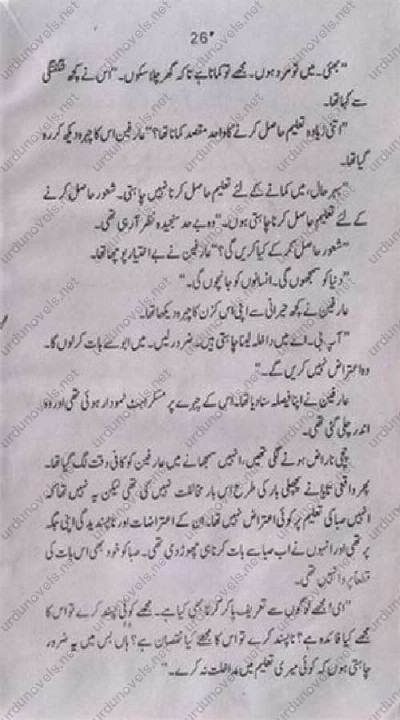 26
"بھئی۔ میں تو مرد ہوں۔ مجھے تو کمانا ہے تاکہ گھر چلا سکوں۔" اس نے کچھ شگفتگی
سے کہا تھا۔
"اتنی زیادہ تعلیم حاصل کرنے کا واحد مقصد کمانا تھا؟" عارفین اس کا چہرہ دیکھ کر رہ
گیا تھا۔
"بہرحال، میں کمانے کے لئے تعلیم حاصل کرنا نہیں چاہتی۔ شعور حاصل کرنے
کے لئے تعلیم حاصل کرنا چاہتی ہوں۔" وہ بے حد سنجیدہ نظر آ رہی تھی۔
"شعور حاصل کر کے کیا کریں گی؟" عارفین نے بے اختیار پوچھا تھا۔
"دنیا کو سمجھوں گی۔ انسانوں کو جانچوں گی۔"
عارفین نے کچھ حیرانی سے اپنی اس کزن کا چہرہ دیکھا تھا۔
"آپ بی۔ اے میں داخلہ لینا چاہتی ہیں۔ ضرور لیں۔ میں ابو سے بات کر لوں گا۔
وہ اعتراض نہیں کریں گے۔"
عارفین نے اپنا فیصلہ سنا دیا تھا۔ اس کے چہرے پر مسکراہٹ نمودار ہوئی تھی اور وہ
اندر چلی گئی تھی۔
چچی ناراض ہونے لگی تھیں، انہیں سمجھانے میں عارفین کو کافی وقت لگ گیا تھا۔
پھر واقعی تایا نے پچھلی بار کی طرح اس بار مخالفت نہیں کی تھی لیکن یہ نہیں تھا کہ
انہیں صبا کی تعلیم پر کوئی اعتراض نہیں تھا۔ ان کے اعتراضات اور ناپسندیدگی اپنی جگہ
پر تھی اور انہوں نے اب صبا سے بات کرنا ہی چھوڑ دی تھی۔ صبا کو خود بھی اس بات کی
قطعاً پروا نہیں تھی۔
"امی! مجھے لوگوں سے تعریف پا کر کرنا بھی کیا ہے۔ مجھے کوئی پسند کرے تو اس کا
مجھے کیا فائدہ ہے؟ ناپسند کرے تو اس کا مجھے کیا نقصان ہے؟ ہاں بس میں یہ ضرور
چاہتی ہوں کہ کوئی میری تعلیم میں مداخلت نہ کرے۔"
urdunovels.net